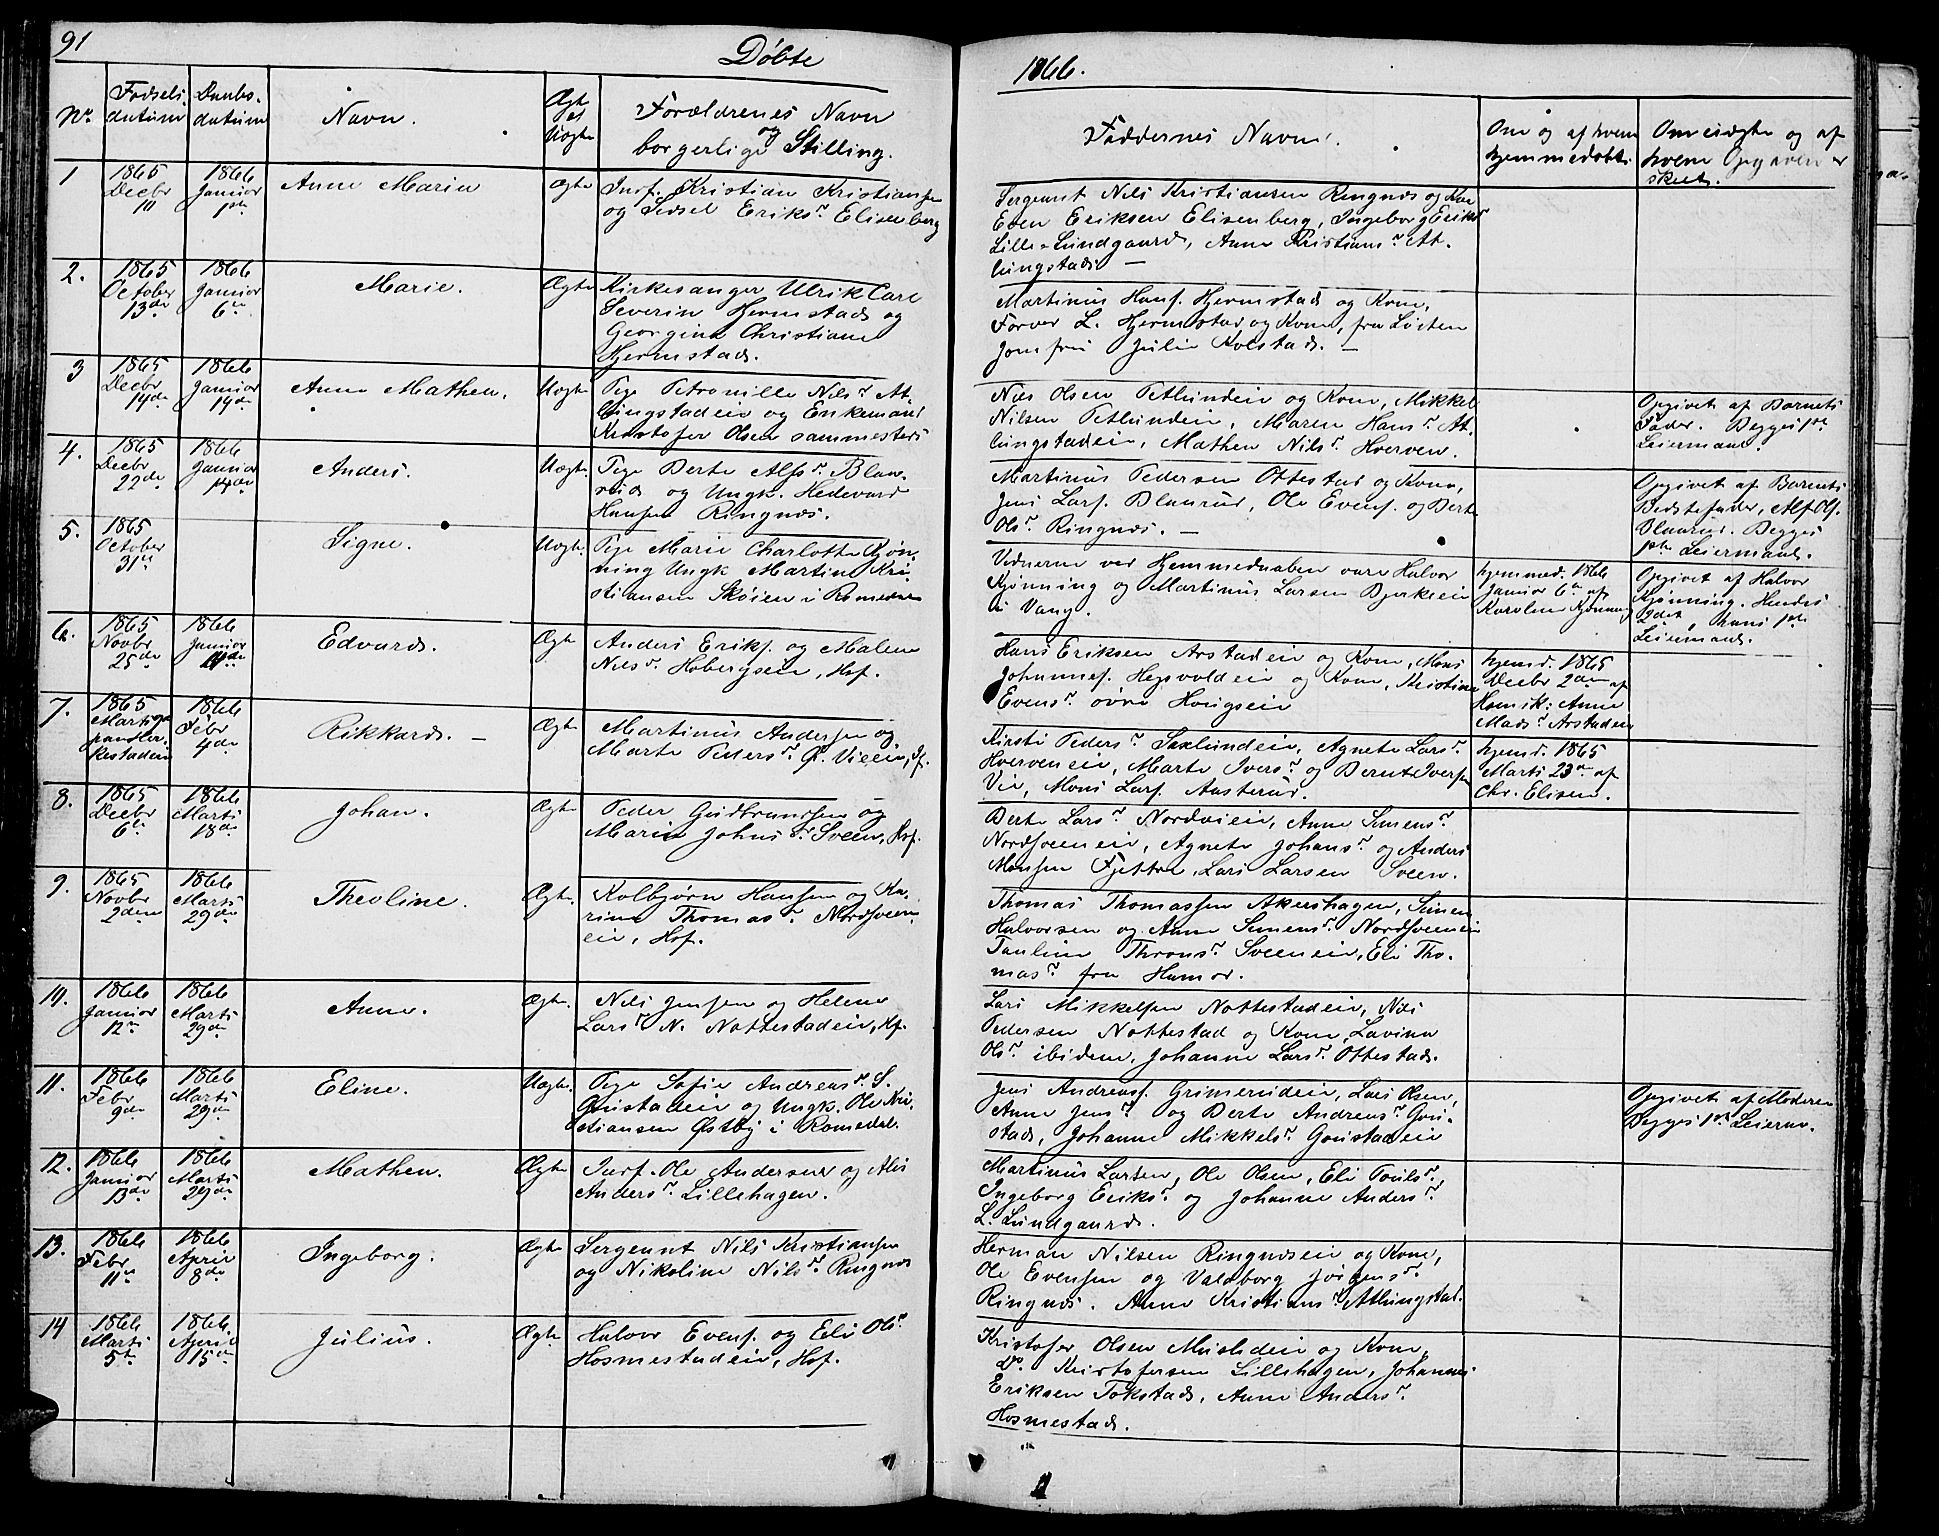 91
Døbte
1866.
No.
Fødsels-
datum
Daabs-
datum
Navn.
Ægte
el
Uægte
Forældrenes Navn
og
borgerlige Stilling.
Faddernes Navn.
Om og af hvem
hjemmedøbt.
Om uægte og af
hvem Opgaven er
skeet.
1
1865
Decbr
10
1866
Januar
1ste
Anne Marie
ægte
Indf. Kristian Kristiansen
og Sidsel Eriksdr Elisenberg
Sergeant Nils Kristiansen Ringnæs og Kone
Even Eriksen Elisenberg, Ingeborg Eriksdr
Lille-Lundgaard, Anne Kristiansdr At-
lungstad. —
2.
1865
October
13de
1866
Januar
6te
Marie.
Ægte
Kirkesanger Ulrik Carl
Severin Hjermstad og
Georgine Christiane
Hjermstad.
Martinus Hans. Hjermstad og Kone,
Farver L. Hjermstad og Kone, fra Løiten
Jomfru Julie Kolstad. —
3
1865
Decbr
14de
1866
Januar
14de
Anne Mathea.
Uægte
Pige Petronille Nilsdr At-
lungstadeie og Enkemand
Kristofer Olsen sammesteds
Nils Olsen Petlundeie og Kone, Mikkel
Nilsen Petlundeie, Maren Hansdr At-
lungstadeie, Mathea Nilsdr Hverven.
Opgivet af Barnets
Fader. Begges 1ste
Leiermaal.
4.
1865
Decbr
22de
1866
Januar
14de
Anders.
Uægte
Pige Berte Alfsdr Blau-
rud og Ungk. Hedevard
Hansen Ringnæs.
Martinus Pedersen Ottestad og Kone,
Jens Lars. Blaurud, Ole Evens. og Berte
Olsdr Ringnæs. —
Opgivet af Barnets
Bedstefader, Alf Ols.
Blaurud. Begges
1ste Leiermaal.
5.
1865
October
31te
Signe.
Uægte
Pige Marie Charlotte Kjøn-
ning Ungk Martin Kri-
stiansen Skøien i Romedal
Vidnerne ved Hjemmedaaben vare Halvor
Kjønning og Martinus Larsen Bjerkeeie
i Vang.
hjemmed. 1866
Januar 6te af
Karoline Kjønning
Opgivet af Halvor
Kjønning. Hendes
2det, hans 1ste
Leiermaal.
6.
1865
Novbr
25de
1866
Januar
14de
Edvard.
Ægte
Anders Eriks. og Malene
Nilsdr Hobergseie, Hsf.
Hans Eriksen Arstadeie og Kone, Mons
Johannes. Hegsvoldeie og Kone, Kristine
Evensdr øvre Hougseie
hjemd. 1865
Decbr 2den af
Homik: Anne
Madsdr Arstadeie
7.
1865
Marts
1866
Febr
4de
Rikkard. —
Ægte
Martinus Andersen og
Marte Pedersdr Ø. Vieeie, If.
Kirsti Pedersdr Saxlundeie, Agnete Larsdr
Hverveneie, Marte Iversdr og Bernt Iversen
Vie, Mons Lars. Aasterud.
hjemd. 1865
Marts 23de af
Chr. Elisen.
8.
1865
Decbr
6te
1866
Marts
18de
Johan.
Ægte
Peder Gudbrandsen og
Marie Johnsdr Sveen, Hsf.
Berte Larsdr Nordvieie, Anne Simensdr
Nordsveeneie, Agnete Johansdr og Anders
Monsen Fjettre, Lars Larsen Sveen.
9.
1865
Novbr
2den
1866
Marts
29de
Theoline.
Ægte
Kolbjørn Hansen og Ka-
rine Thomasdr Nordsveen-
eie, Hsf.
Thomas Thomassen Akershagen, Simen
Halvorsen og Anne Simensdr Nordsveeneie
Pauline Thronsdr Sveeneie, Eli Tho-
masdr fra Hamar.
10.
1866
Januar
12te
1866
Marts
29de
Anne.
Ægte
Nils Jensen og Helene
Larsdr N. Nottestadeie, Hsf.
Lars Mikkelsen Nottestadeie, Nils
Pedersen Nottestad og Kone, Lavina
Olsdr ibidem, Johanne Larsdr Ottestad.
11.
1866
Febr
9de
1866
Marts
29de
Eline.
Uægte
Pige Sofie Andreasdr S.
Goustadeie og Ungk. Ole Kri-
stiansen Østby i Romedal.
Jens Andreas. Grimerudeie, Lars Olsen,
Anne Jensdr og Berte Andreasdr Gou-
stad, Johanne Mikkelsdr Goustadeie
Opgivet af Moderen
Begges 1ste Leierm.
12.
1866
Januar
13de
1866
Marts
29de
Mathea.
Ægte
Indf. Ole Andersen og Alis
Andersdr Lillehagen.
Martinus Larsen, Ole Olsen, Eli Poulsdr,
Ingeborg Eriksdr og Johanne Andersdr
L. Lundgaard.
13.
1866
Febr
11te
1866
April
8de
Ingeborg.
Ægte
Sergeant Nils Kristiansen
og Nikoline Nilsdr Ringnæs
Herman Nilsen Ringnæseie og Kone,
Ole Evensen og Valdborg Jørgensdr
Ringnæs. Anne Kristiansdr Atlungstad.
14
1866
Marts
5te
1866
April
15de
Julius.
Ægte
Halvor Evens. og Eli Olsdr
Hosmestadeie, Hsf.
Kristofer Olsen Musliedeie og Kone,
Do. Kristofersen Lillehagen, Johannes
Eriksen Tokstad, Anne Andersdr
Hosmestad.